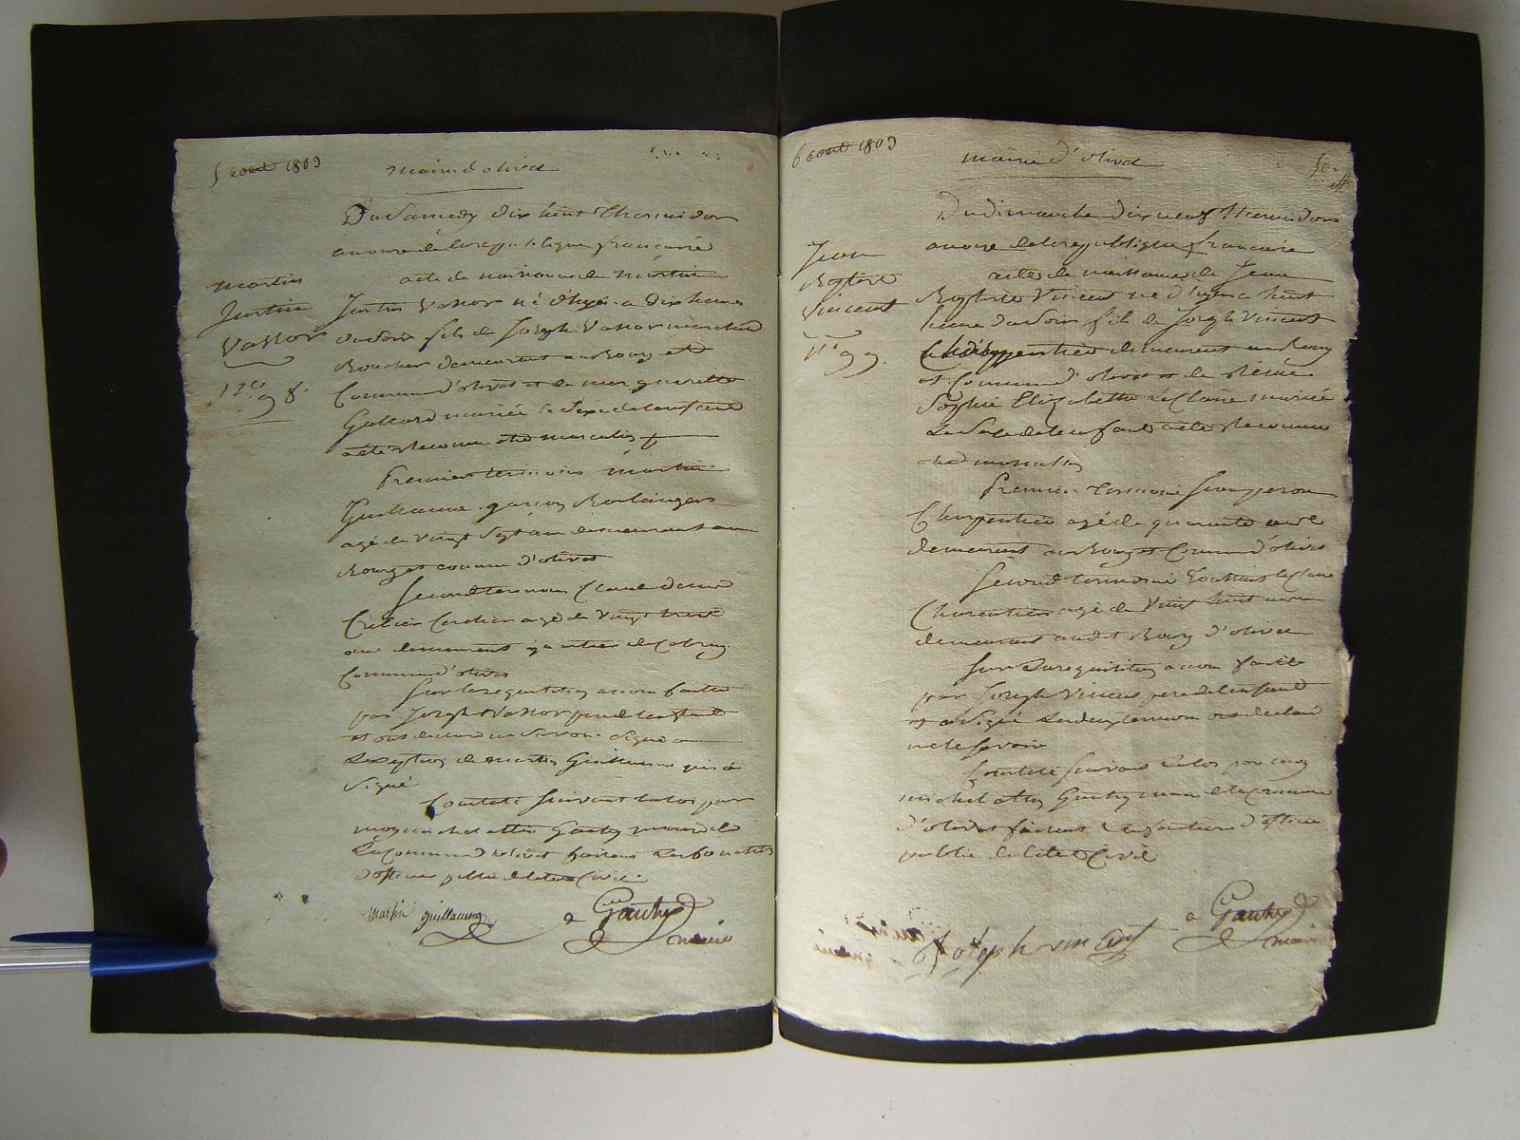 5 aout 1803
mairie d'olivet
Du Samedy dix huit Thermidor
an onze de la republique francaise
acte de naissance de martin
martin
Justin
vassor
n.o 98.
Justin Vassor né d'hyer a dix heures
du Soir fils de Joseph Vassor marchand
Boucher demeurant au Bourg et
Commune d'olivet et de margueritte
mariée le Sexe de lenfant
a été Reconnu etre masculin
Premier temoin martin
Guillaume garcon Boulanger
agé de Vingt Sept ans demeurant au
Bourg et commune d'olivet
Second temoin
agé de Vingt
ans demeurant
Commune d'olivet
Sur la requisition a nous faitte
par Joseph Vassor pere de lenfant
et ont declaré ne Savoir Signer
Lexception de martin Guillaume qui a
Signé
Constaté Suivant la loy par
moy michel Gauthy maire de
La Commune d'olivet faisant Les fonctions
d'officier public de letat Civil
martin guillaume
Gauthy
maire
6 aout 1803
mairie d'olivet
Du dimanche dix neuf Thermidor
an onze de la republique francaise
acte de naissance de Jean
Jean
Baptiste
Vincent
n.o 99.
Baptiste Vincent né d'hyer a huit
heure du Soir fils de Joseph Vincent
Charpentier demeurant au Bourg
et Commune d'olivet et de
Sophie Elizabette Leclerc mariée
Le Sexe de lenfant a été Reconnu
etre masculin
Premier temoin
Charpentier agé de quarante
demeurant au Bourg et Commune d'olivet
Second temoin Leclerc
Charpentier agé de Vingt huit ans
demeurant audit Bourg d'olivet
Sur La requisition a nous faitte
par Joseph Vincent pere de lenfant
et a Signé Les deux temoins ont declaré
ne le Savoir
Constaté Suivant la loy par moy
michel Gauthy maire de la Commune
d'olivet faisant Les fonctions d'officier
public de letat Civil
joseph vincent
Gauthy
maire